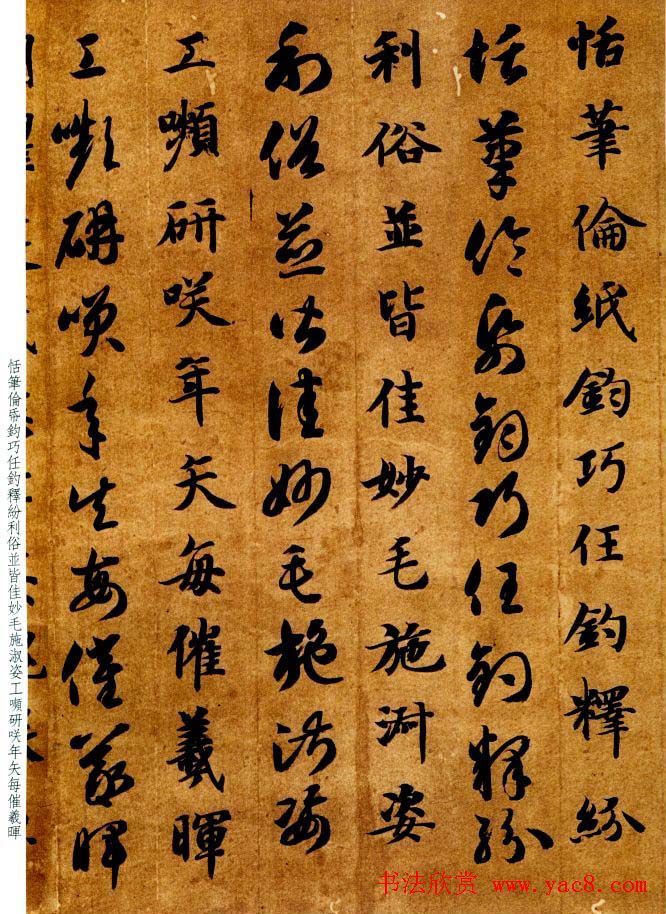 恬筆倫紙鈞巧任釣釋紛
恬筆倫紙鈞巧任釣釋紛
利俗並皆佳妙毛施淑姿
利俗並皆佳妙毛施淑姿
工嚬研咲年矢每催羲暉
工嚬研咲年矢每催羲暉
恬筆倫帋鈞巧任釣釋紛利俗並皆佳妙毛施淑姿工嚬研咲年矢每催羲暉
书法欣赏 www.yac8.com